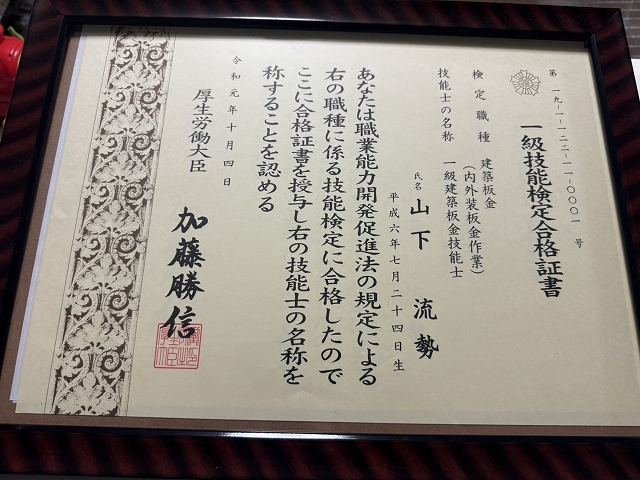 第 一九-一-一二二-一一-〇〇〇一 号
一級技能検定合格証書
検定職種 建築板金
(内外装板金作業)
技能士の名称 一級建築板金技能士
氏名 山下 流勢
平成六年七月二十四日生
あなたは職業能力開発促進法の規定による
右の職種に係る技能検定に合格したので
ここに合格証書を授与し右の技能士の名称を
称することを認める
令和元年十月四日
厚生労働大臣 加藤勝信